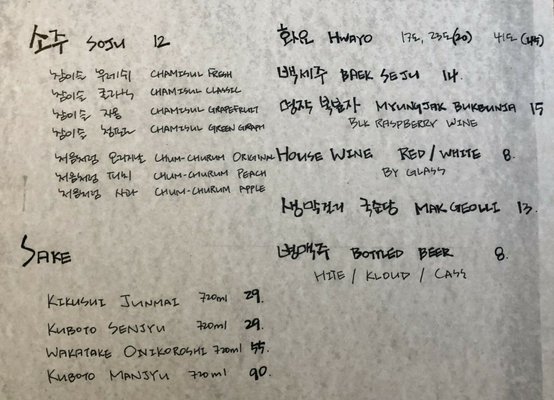 소주 SOJU 12
참이슬 후레쉬 CHAMISUL FRESH
참이슬 클라식 CHAMISUL CLASSIC
참이슬 자몽 CHAMISUL GRAPEFRUIT
참이슬 청포도 CHAMISUL GREEN GRAPE
처음처럼 오리지날 CHUM-CHURUM ORIGINAL
처음처럼 CHUM-CHURUM PEACH
처음처럼 사과 CHUM-CHURUM APPLE
SAKE
KIKUSHI JUNMAI 720ml 29.
KUBOTO SENJYU 720ml 29.
WAKATAKE ONIKOROSHI 720ml 55.
KUBOTO MANJYU 720ml 90.
화요 HWAYO 17도, 25도(20) 41도(45)
백세주 BAEK SEJU 14.
명작 복분자 MYUNGJAK BUKBUNJA 15
BLK RASPBERRY WINE
HOUSE WINE RED/WHITE 8.
BY GLASS
생막걸리 국순당 MAKGEOLLI 13.
병맥주 BOTTLED BEER 8.
HITE / KLOUD / CASS